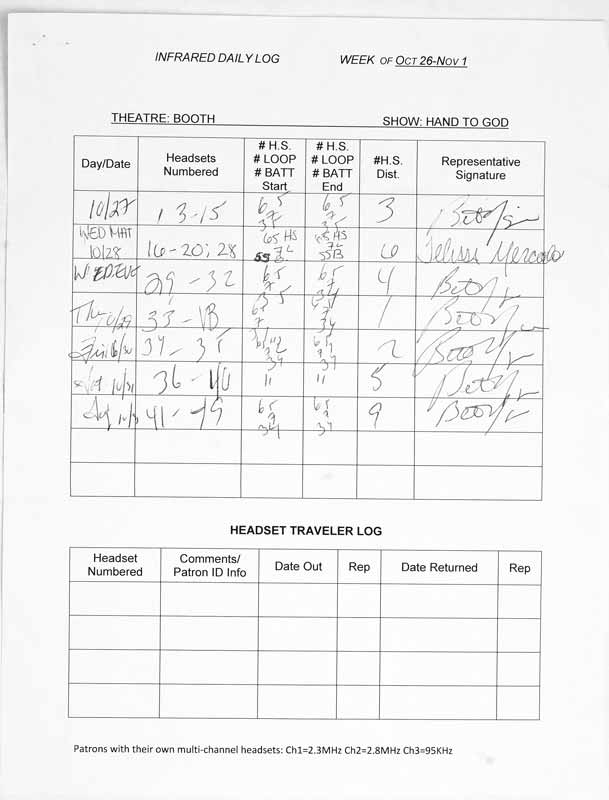 INFRARED DAILY LOG WEEK OF OCT 26-NOV 1
THEATRE: BOOTH SHOW: HAND TO GOD
Day/Date Headsets Numbered # H.S. # LOOP # BATT Start # H.S. # LOOP # BATT End #H.S. Dist. Representative Signature
10/27 13-15 65 7 65 7 3
WED MAT 10/28 16-20; 28 65 HS 7L 65 HS 7L 55B 6
WED EVE 29-32 65 7 35 65 7 34 4
10/29 33 - 1B 65 7 65 7 34 1
Fri 34 - 35 34 65 34 2
Sat 10/31 36 - 40 11 11 5
41 - 49 65 7 34 65 7 34 9
HEADSET TRAVELER LOG
Headset Numbered Comments/ Patron ID Info Date Out Rep Date Returned Rep
Patrons with their own multi-channel headsets: Ch1=2.3MHz Ch2=2.8MHz Ch3=95KHz